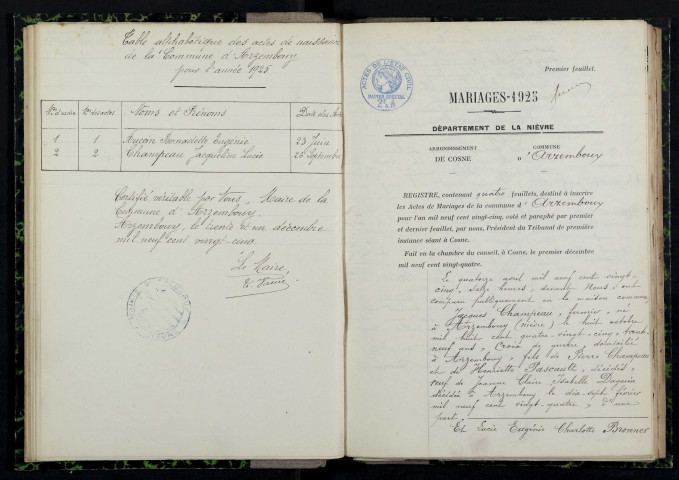 Table alphabétique des actes de naissance
de la Commune d'Arzembouy
pour l'année 1925
Noms et Prénoms
1 1 Aucon Bernadette Eugénie 23 Juin
2 2 Champeau Jacqueline Lucie 26 Septembre
Certifié véritable par Nous, Maire de la
Commune d'Arzembouy.
Arzembouy, le trente et un décembre
mil neuf cent vingt-cinq.
Le Maire,
Premier feuillet.
ACTES DE L'ETAT CIVIL
PAPIER SPECIAL
MARIAGES-1925
DÉPARTEMENT DE LA NIÈVRE
ARRONDISSEMENT
DE COSNE
COMMUNE
D'Arzembouy
REGISTRE, contenant quatre feuillets, destiné à inscrire
les Actes de Mariages de la commune d'Arzembouy
pour l'an mil neuf cent vingt-cinq, coté et paraphé par premier
et dernier feuillet, par nous, Président du Tribunal de première
instance séant à Cosne.
Fait en la chambre du conseil, à Cosne, le premier décembre
mil neuf cent vingt-quatre.
Le quatorze avril mil neuf cent vingt-
cinq, seize heures, devant Nous ont
comparu publiquement en la maison commune
Jacques Champeau, fermier, né
à Arzembouy (Nièvre) le huit octobre
mil huit cent quatre-vingt-cinq, trente-
neuf ans, Croix de guerre, domicilié
à Arzembouy, fils de Pierre Champeau
et de Henriette Pascault, décédés,
veuf de Jeanne Claire Isabelle Daguin
décédée à Arzembouy le dix-sept février
mil neuf cent vingt-quatre, d'une
part.
Et Lucie Eugénie Charlotte Bronner